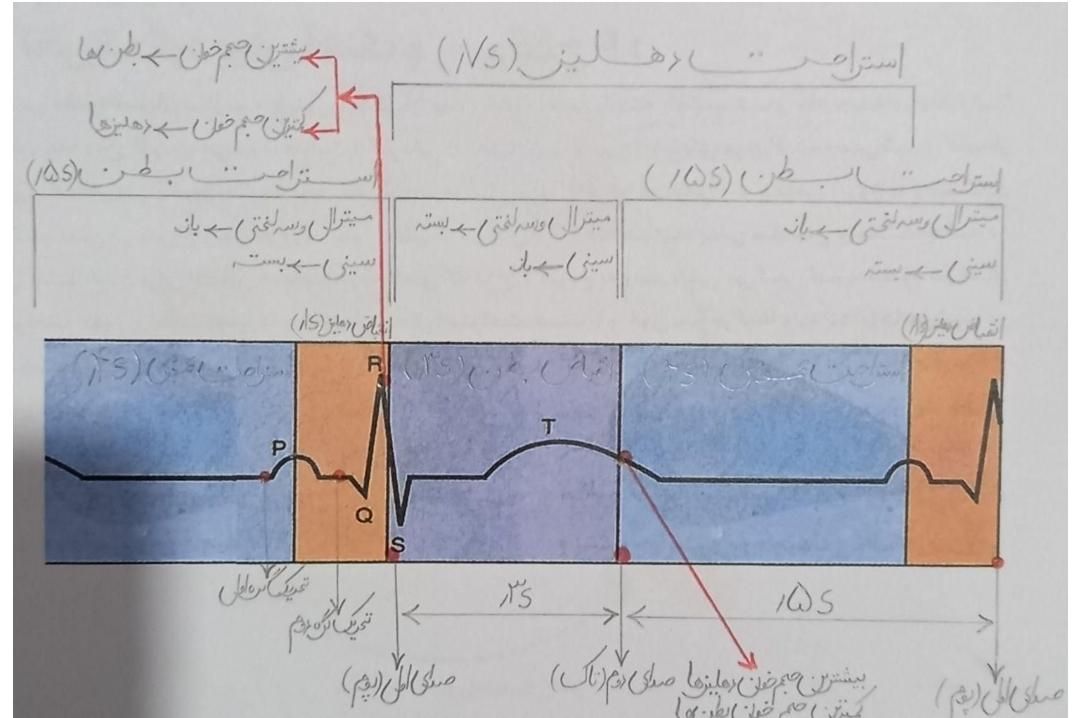 بیشترین حجم خون ← بطن‌ها
کمترین حجم خون ← دهلیزها
استراحت دهلیز (۰٫۷s)
استراحت بطن (۰٫۵s)
استراحت بطن (۰٫۵s)
میترال و سه‌لختی ← باز
سینی ← بسته
میترال و سه‌لختی ← بسته
سینی ← باز
میترال و سه‌لختی ← باز
سینی ← بسته
انقباض دهلیز (۰٫۱s)
انقباض دهلیز (۰٫۱s)
استراحت عمومی (۰٫۴s)
انقباض بطن (۰٫۳s)
استراحت عمومی (۰٫۴s)
P
Q
R
S
T
تحریک گره اول
تحریک گره دوم
۰٫۳s
۰٫۵s
صدای اول (پوم)
صدای دوم (تاک)
بیشترین حجم خون دهلیزها
کمترین حجم خون بطن‌ها
صدای اول (پوم)